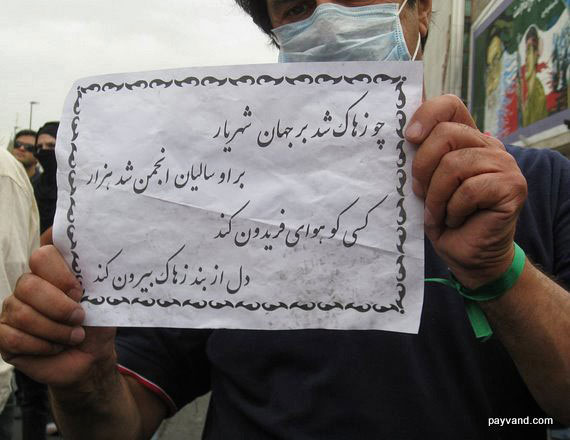 چو زهاک شد بر جهان شهریار
بر او سالیان انجمن شد هزار
کسی کو هوای فریدون کند
دل از بند زهاک بیرون کند
payvand.com